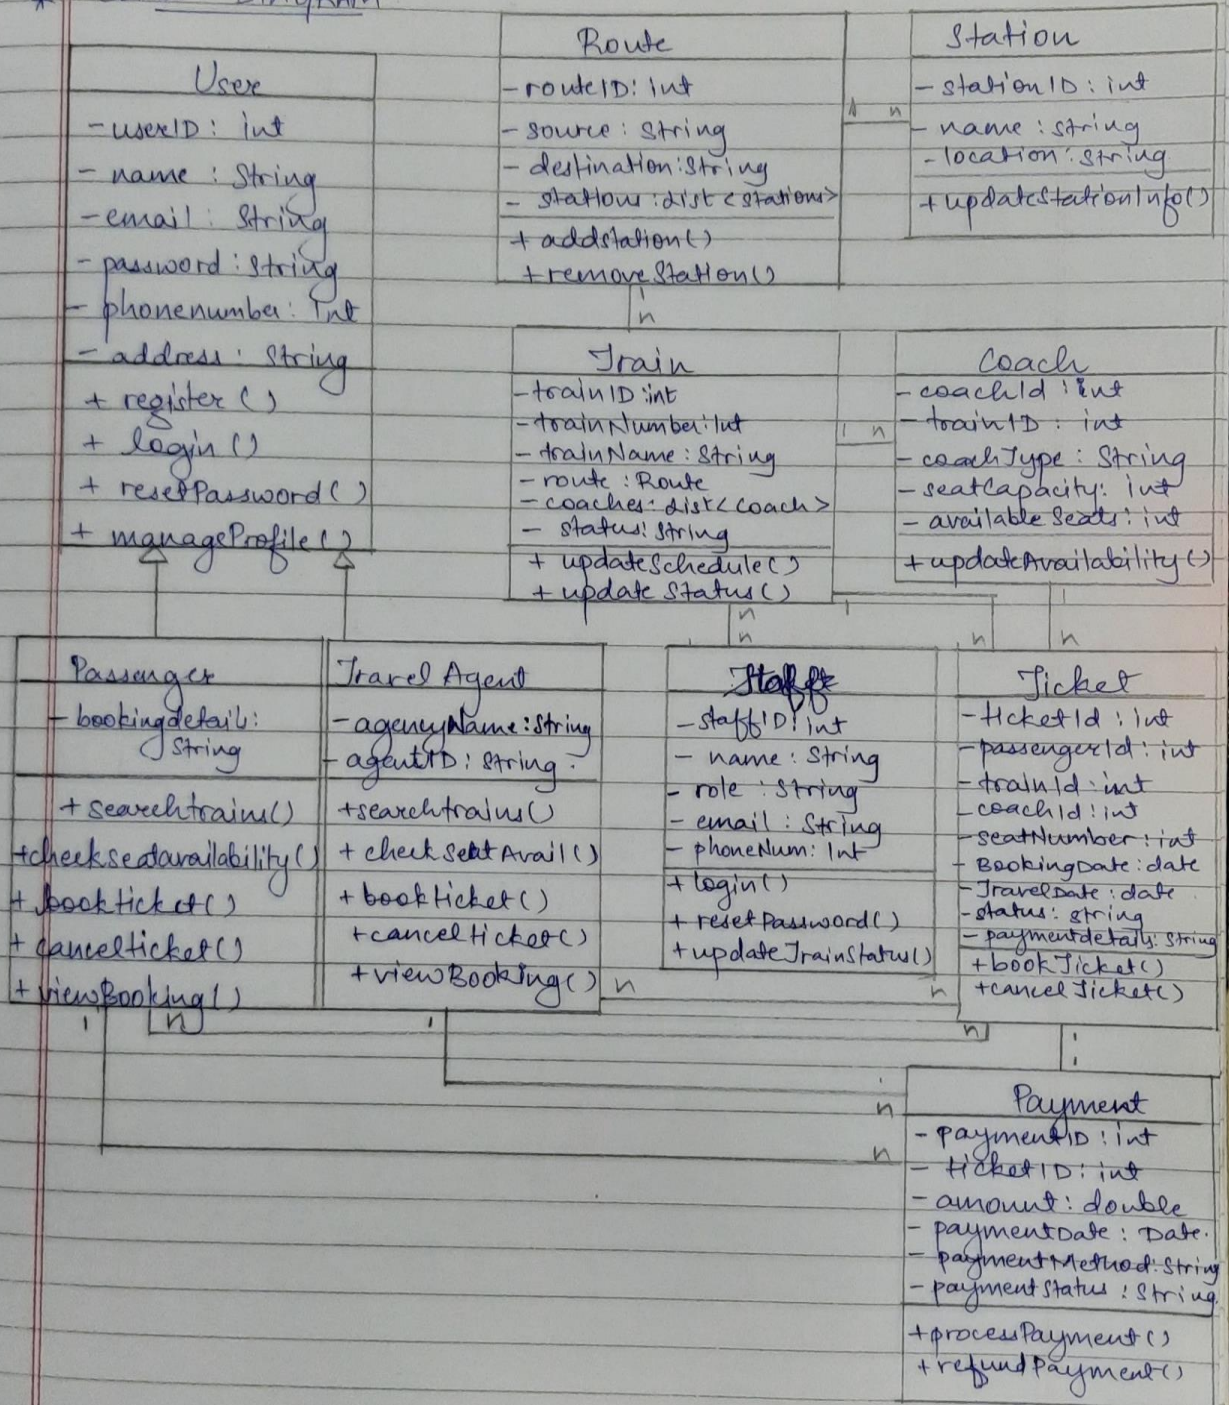 DIAGRAM
User
- userID : int
- name : String
- email : String
- password : String
- phonenumber : Int
- address : String
+ register ()
+ login ()
+ resetPassword ()
+ manageProfile ()
Route
- routeID : int
- source : String
- destination : String
- stations : List <stations>
+ addstation ()
+ removeStation ()
1
n
1 n
Station
- stationID : int
- name : string
- location : string
+ updateStationInfo ()
Train
- trainID : int
- trainNumber : Int
- trainName : String
- route : Route
- coaches : List <Coach>
- status : String
+ updateSchedule ()
+ update Status ()
1 n
Coach
- coachId : int
- trainID : int
- coachType : String
- seatCapacity : int
- available Seats : int
+ updateAvailability ()
n
n
1
n
1
n
Passenger
- bookingdetail :
String
+ searchtrains ()
+ checkseatavailability ()
+ bookticket ()
+ cancelticket ()
+ viewBooking ()
Travel Agent
- agencyName : String
- agentID : String
+ searchtrains ()
+ check SeatAvail ()
+ bookticket ()
+ cancelticket ()
+ viewBooking ()
Staff
- staffID : int
- name : String
- role : String
- email : String
- phoneNum : Int
+ login ()
+ resetPassword ()
+ updateTrainStatus ()
Ticket
- ticketId : int
- passengerId : int
- trainId : int
- coachId : int
- seatNumber : int
- BookingDate : date
- TravelDate : date
- status : string
- paymentdetails : String
+ bookTicket ()
+ cancelTicket ()
n n
1 n 1 n
1
1
n
n
Payment
- paymentID : int
- ticketID : int
- amount : double
- paymentDate : Date.
- paymentMethod : String
- payment Status : String
+ processPayment ()
+ refundPayment ()